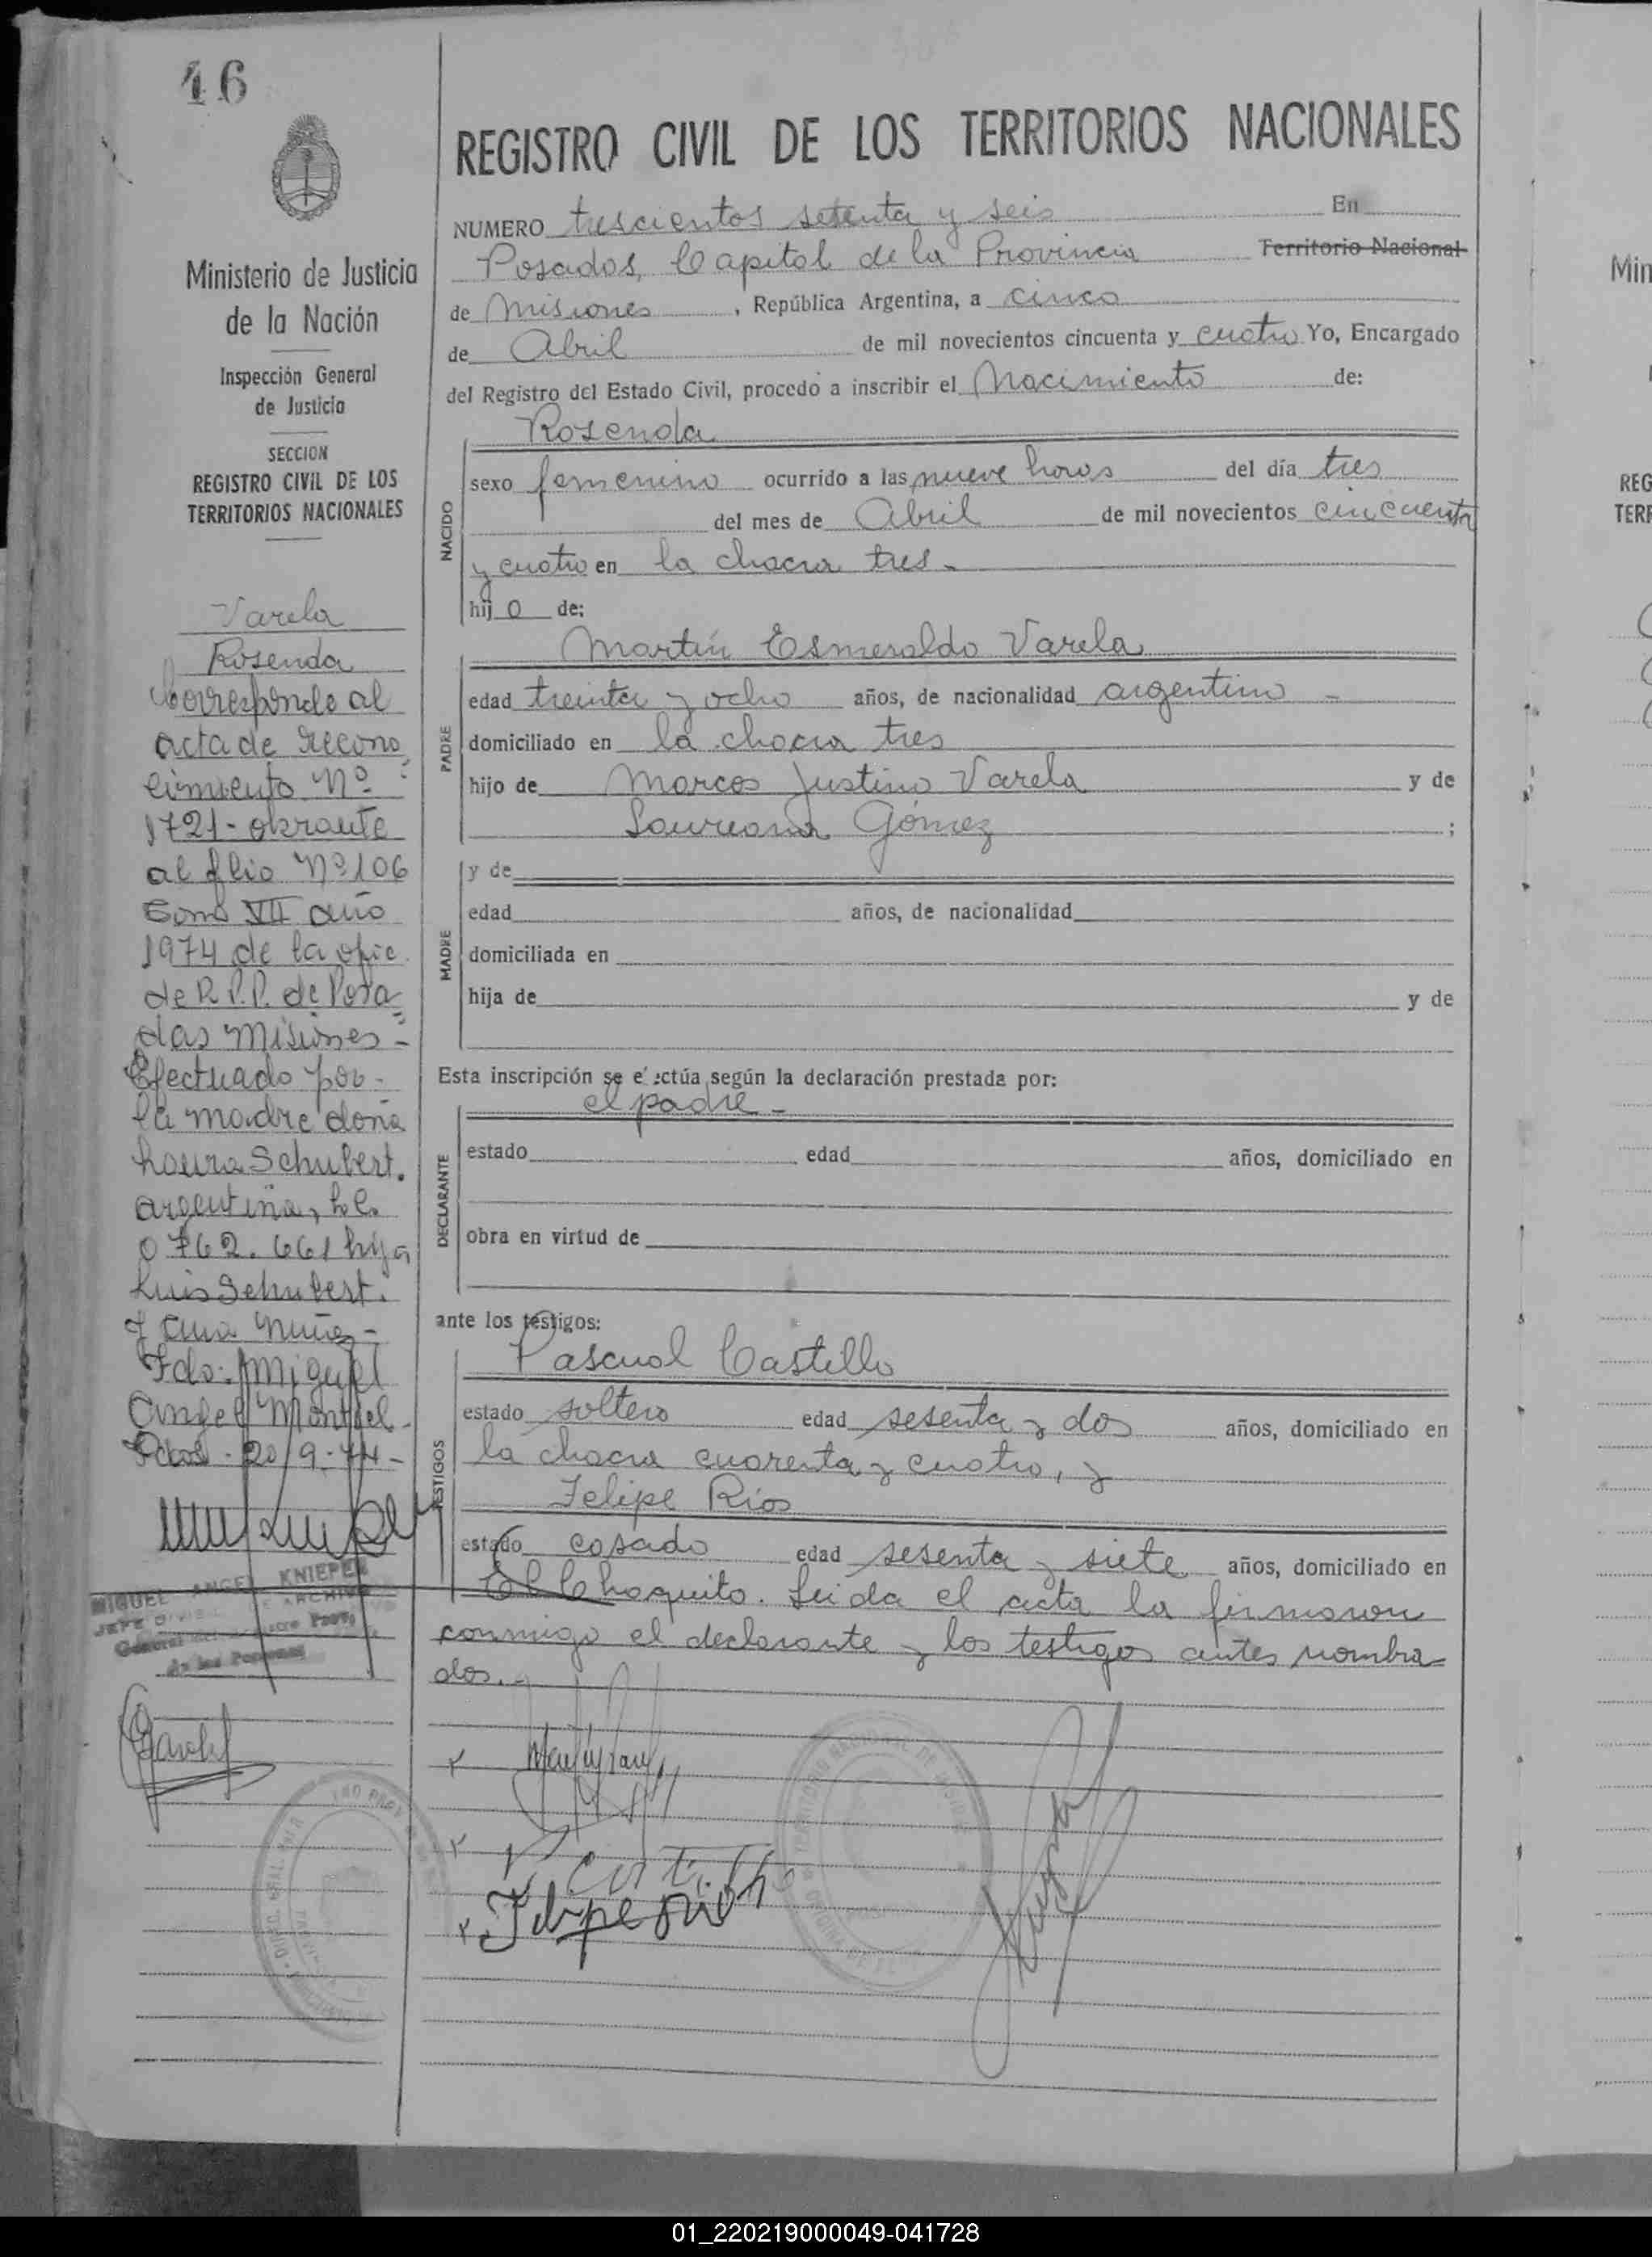 46
Ministerio de Justicia
de la Nación
Inspección General
de Justicia
SECCION
REGISTRO CIVIL DE LOS
TERRITORIOS NACIONALES
Varela
Rosenda
Corresponde al
acta de recono
cimiento Nº
1721 - obrante
al flio Nº 106
Tomo VII año
1974 de la ofic.
de R.P.P. de Posa
das Misiones -
Efectuado por -
la madre doña
Laura Schubert.
argentina, L.C.
0762.661 hija
Luis Schubert.
y Ana Nuñez -
Fdo: Miguel
Angel Montiel -
Pdas - 20/9-74 -
MIGUEL ANGEL KNIEPER
JEFE DIVIS DE ARCHIVO
General del Registro Prov.
de las Personas
REGISTRO CIVIL DE LOS TERRITORIOS NACIONALES
NUMERO trescientos setenta y seis En
Posadas, Capital de la Provincia Territorio Nacional
de Misiones, República Argentina, a cinco
de Abril de mil novecientos cincuenta y cuatro Yo, Encargado
del Registro del Estado Civil, procedo a inscribir el Nacimiento de:
Rosenda
NACIDO
sexo femenino ocurrido a las nueve horas del día tres
del mes de Abril de mil novecientos cincuenta
y cuatro en la chacra tres -
hij a de:
Martín Esmeraldo Varela
PADRE
edad treinta y ocho años, de nacionalidad argentino -
domiciliado en la chacra tres
hijo de Marcos Justino Varela y de
Laureana Gómez ;
MADRE
y de
edad años, de nacionalidad
domiciliada en
hija de y de
Esta inscripción se efectúa según la declaración prestada por:
el padre -
DECLARANTE
estado edad años, domiciliado en
obra en virtud de
ante los testigos:
Pascual Castillo
TESTIGOS
estado soltero edad sesenta y dos años, domiciliado en
la chacra cuarenta y cuatro, y
Felipe Ríos
estado casado edad sesenta y siete años, domiciliado en
El Chaquito. Leida el acta la firmaron
conmigo el declarante y los testigos antes nombra
dos. -
Felipe Rios
Min
REG
TERR
01_220219000049-041728